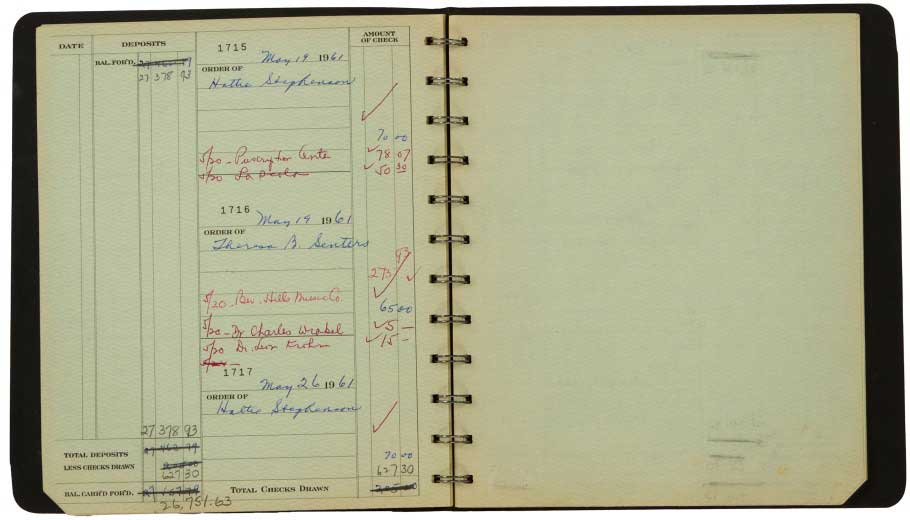 DATE DEPOSITS AMOUNT OF CHECK
BAL. FOR'D. 27 462 79
27 378 93
1715
May 19 1961
ORDER OF
Hattie Stephenson
70 00
5/20 - Prescription Cente 78 07
5/20 La Scala 50 30
1716
May 19 1961
ORDER OF
Theresa B. Senters
273 93
5/20 - Bev. Hills Music Co.
65 00
5/20 - Dr Charles Wrobel 5 —
5/20 Dr. Leon Krohn 15 —
1717
May 26 1961
ORDER OF
Hattie Stephenson
27 378 93
TOTAL DEPOSITS 27 462 79
70 00
LESS CHECKS DRAWN
627 30 627 30
BAL. CARR'D FOR'D. TOTAL CHECKS DRAWN 205.00
26,751.63